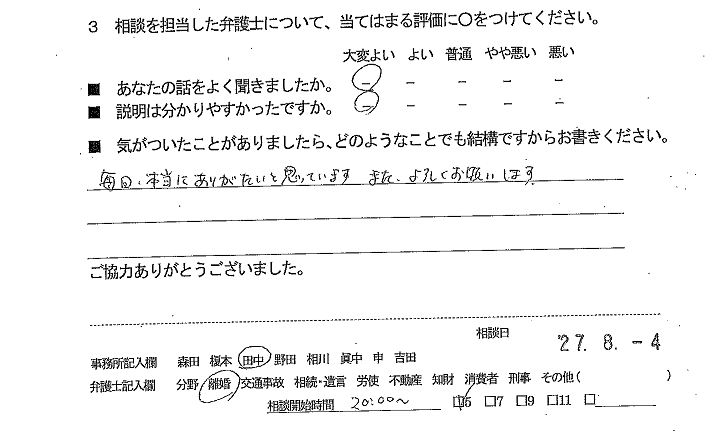 3 相談を担当した弁護士について、当てはまる評価に〇をつけてください。
大変よい よい 普通 やや悪い 悪い
■ あなたの話をよく聞きましたか。 － － － － －
■ 説明は分かりやすかったですか。 － － － － －
■ 気がついたことがありましたら、どのようなことでも結構ですからお書きください。
毎回、本当にありがたいと思っています また、よろしくお願いします
ご協力ありがとうございました。
相談日 '27. 8. -4
事務所記入欄 森田 榎本 田中 野田 相川 眞中 申 吉田
弁護士記入欄 分野 離婚 交通事故 相続・遺言 労使 不動産 知財 消費者 刑事 その他( )
相談開始時間 20:00～ □5 □7 □9 □11 □